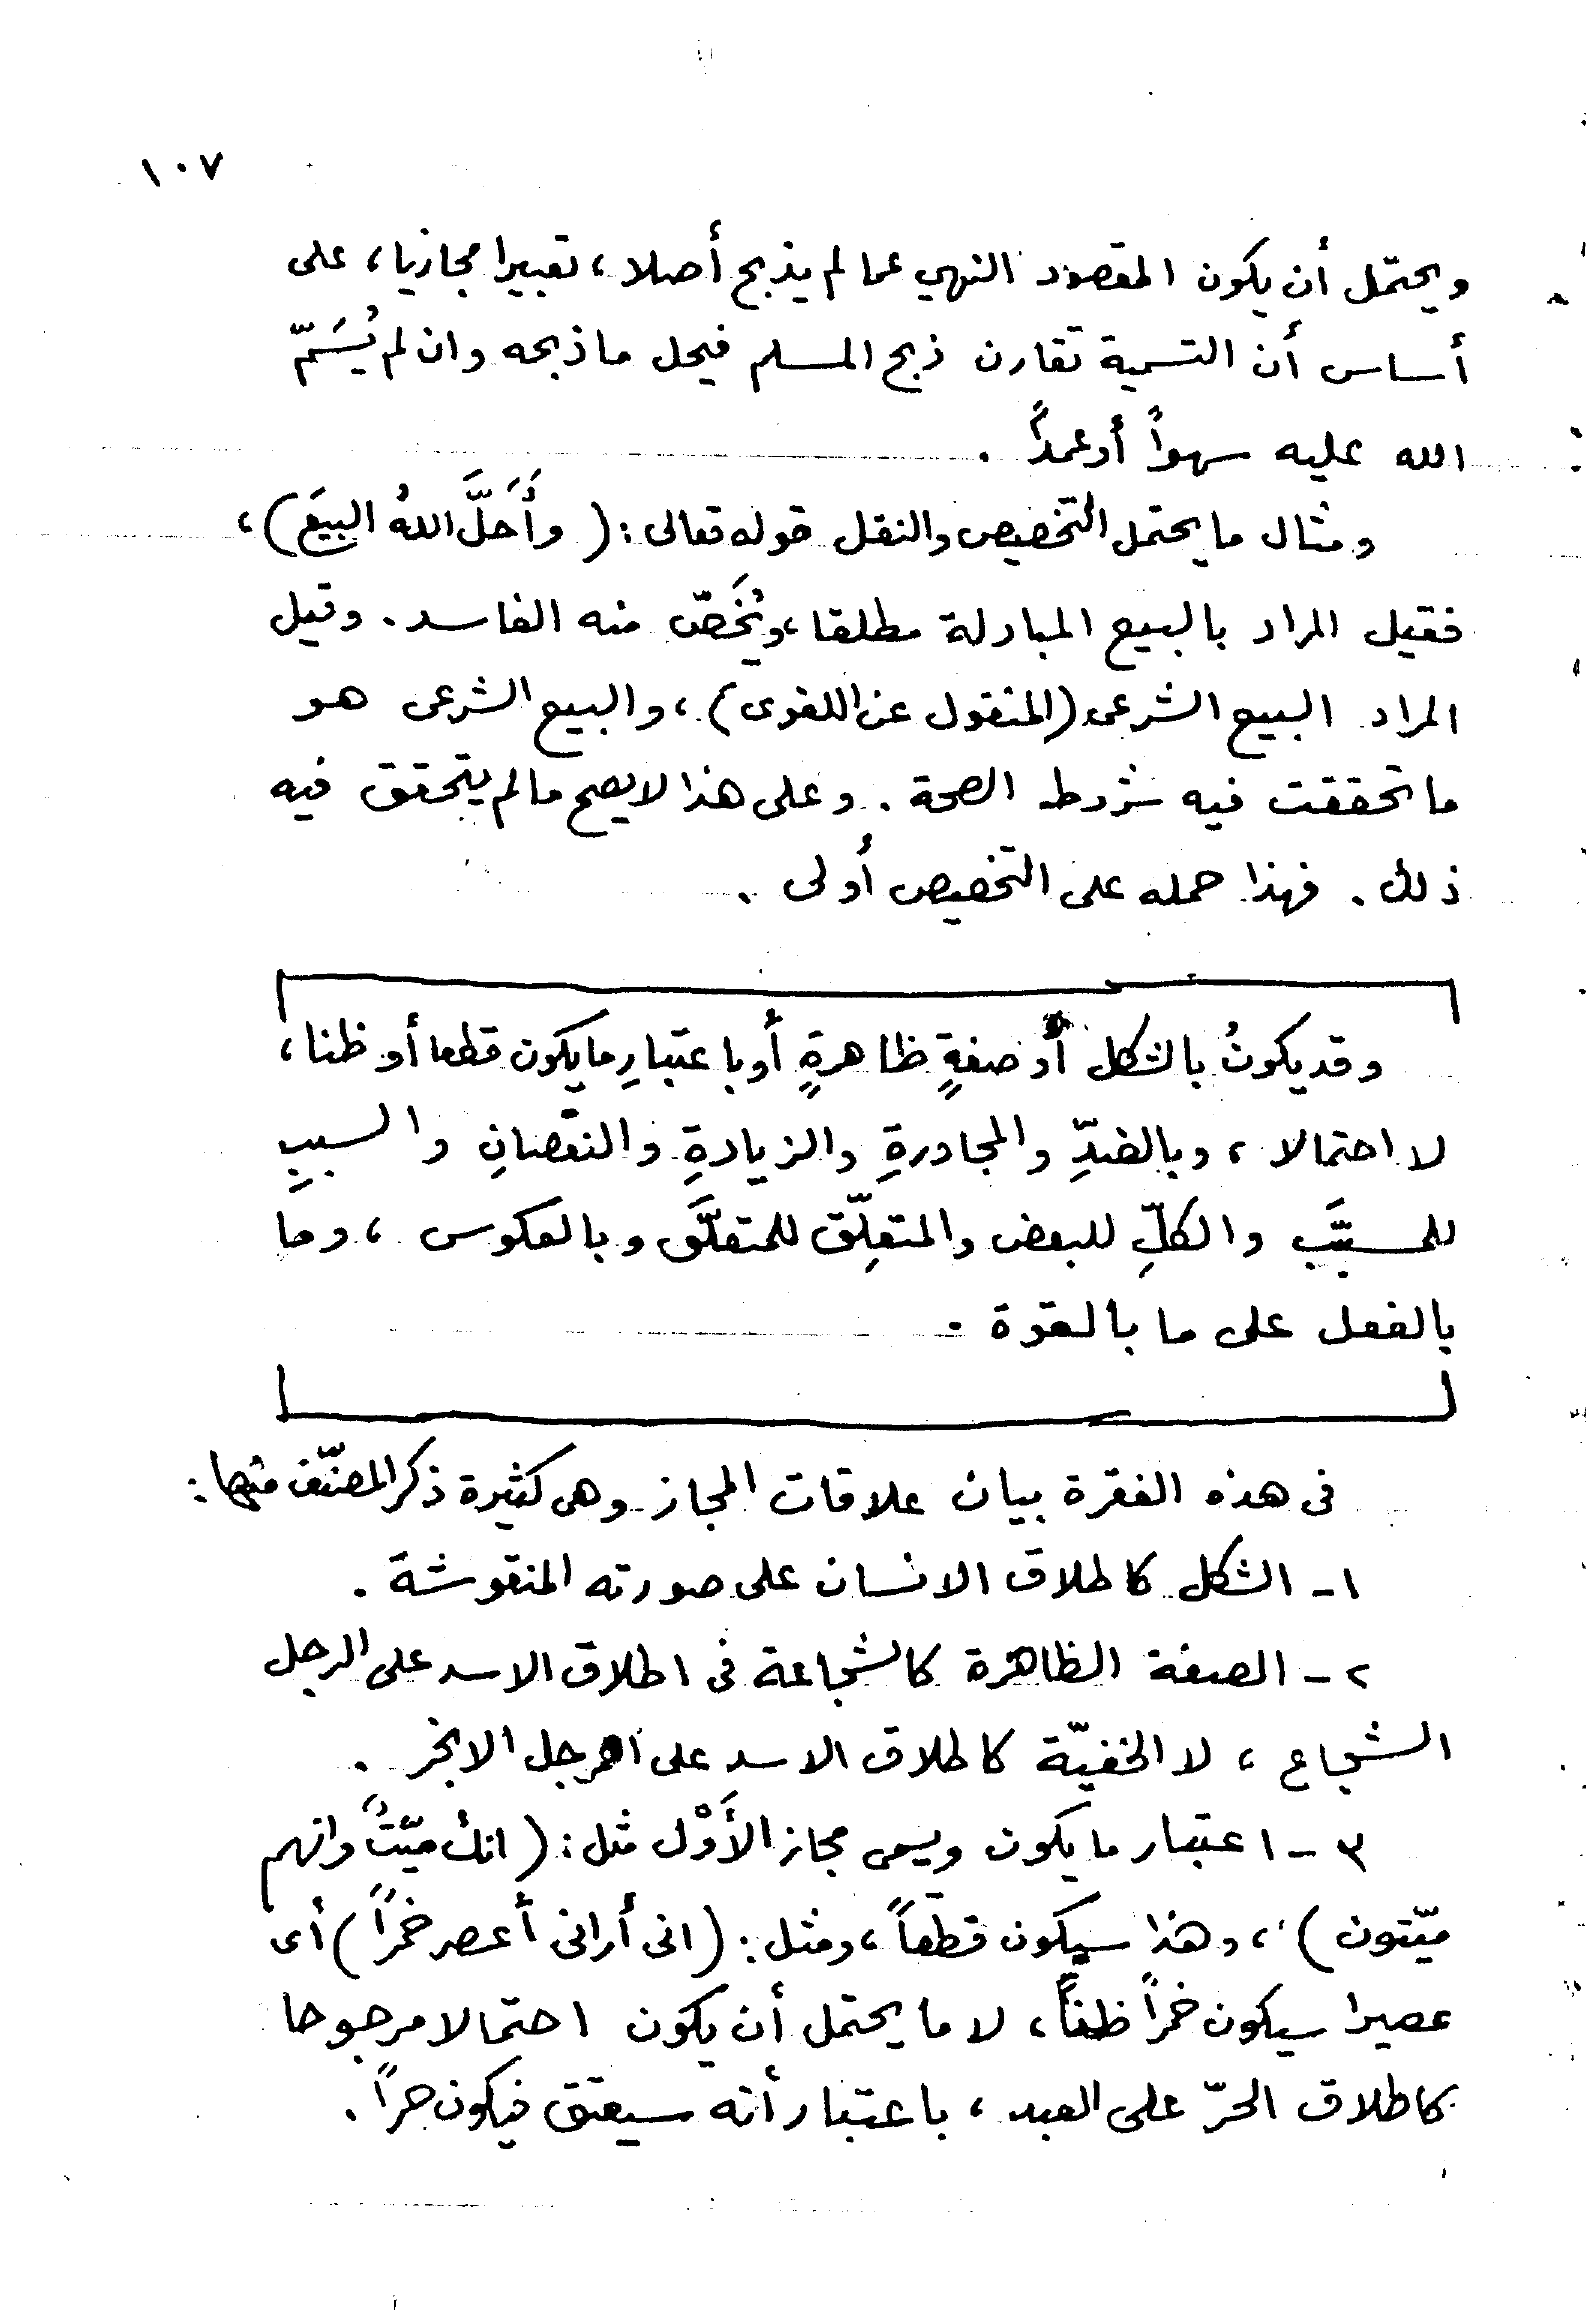 ١٠٧
ويحتمل أن يكون المقصود النهي عما لم يذبح أصلا، تعبيرا مجازيا، على
أساس أن التسمية تقارن ذبح المسلم فيحل ما ذبحه وان لم يُسَمّ
الله عليه سهواً أو عمداً .
ومثال ما يحتمل التخصيص والنقل قوله تعالى : ( وأَحَلَّ اللهُ البيعَ ) ،
فقيل المراد بالبيع المبادلة مطلقا ، ويُخَصّ منه الفاسد . وقيل
المراد البيع الشرعى (المنقول عن اللغوى) ، والبيع الشرعى هو
ما تحققت فيه شروط الصحة . وعلى هذا لا يصح ما لم يتحقق فيه
ذلك . فهذا حمله على التخصيص أولى .
وقد يكونُ بالشكل أو صفةٍ ظاهرةٍ أو باعتبارِ ما يكون قطعا أو ظنا ،
لا احتمالا ، وبالضدِّ والمجاورةِ والزيادةِ والنقصانِ والسببِ
للمسبَّبِ والكلِّ للبعض والمتعلِّق للمتعلَّق وبالعكوس ، وما
بالفعل على ما بالقوة .
فى هذه الفقرة بيان علاقات المجاز وهى كثيرة ذكر المصنّف منها :
١ - الشكل كاطلاق الانسان على صورته المنقوشة .
٢ - الصفة الظاهرة كالشجاعة فى اطلاق الاسد على الرجل
الشجاع ، لا الخفيّة كاطلاق الاسد على الرجل الابخر .
٣ - اعتبار ما يكون ويسمى مجاز الأَوْل مثل : ( انك ميّتٌ وانهم
ميّتون ) ، وهذا سيكون قطعاً ، ومثل : ( انى أرانى أعصر خمراً ) أى
عصيرا سيكون خمراً ظناً ، لا ما يحتمل أن يكون احتمالا مرجوحا
كاطلاق الحرّ على العبد ، باعتبار أنه سيعتق فيكون حراً .